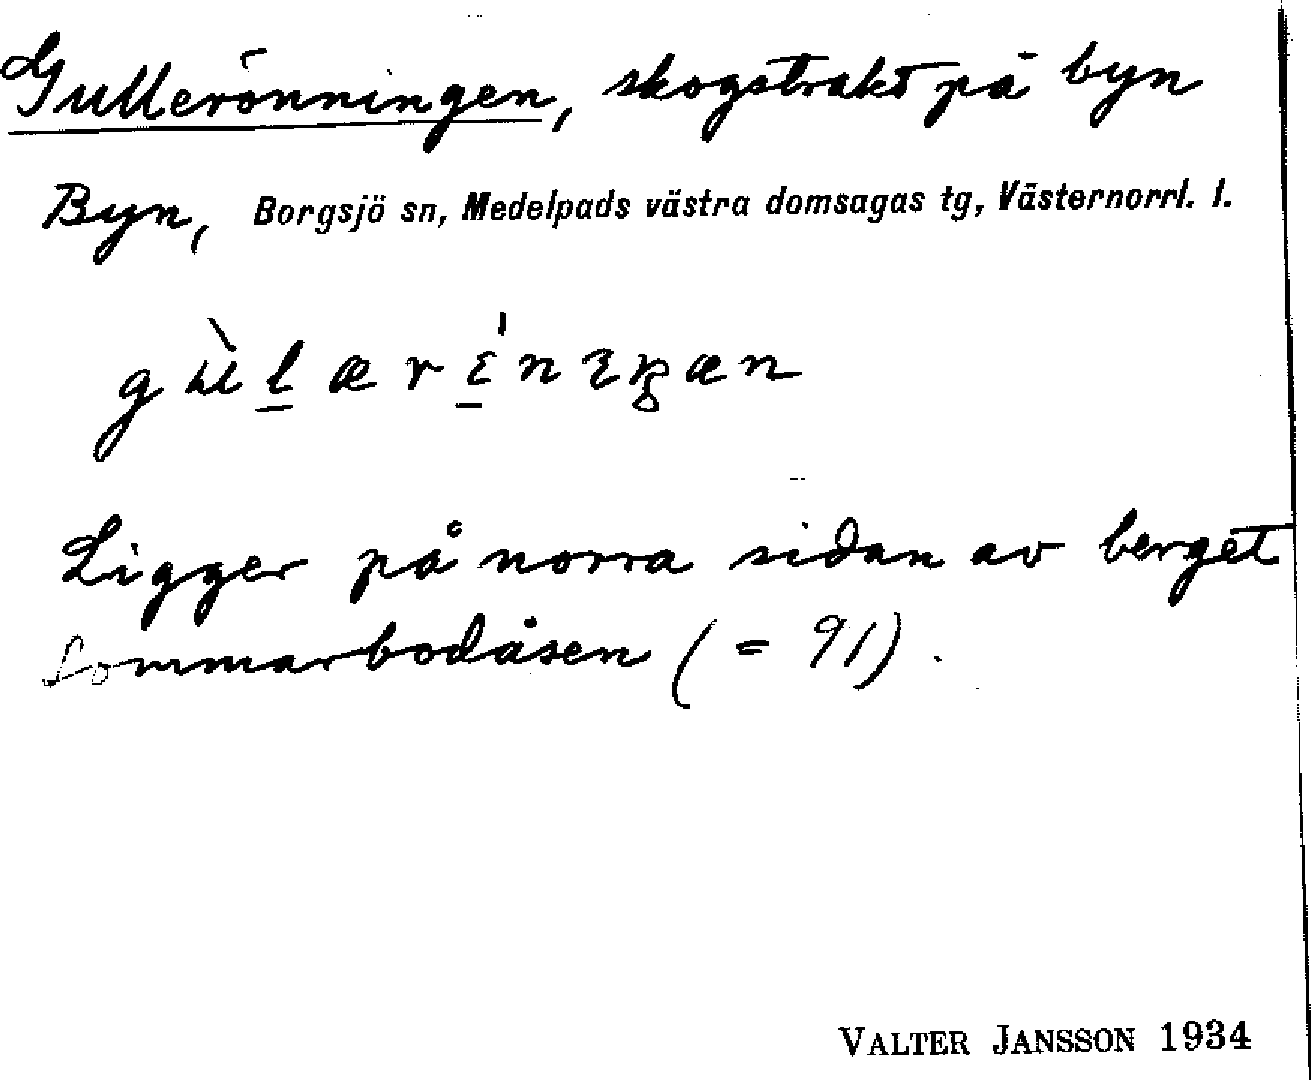 Gullerönningen, skogstrakt på byn
Byn, Borgsjö sn, Medelpads västra domsagas tg, Västernorrl. l.
Ligger på norra sidan av berget
Sommarbodåsen (= 91).
VALTER JANSSON 1934